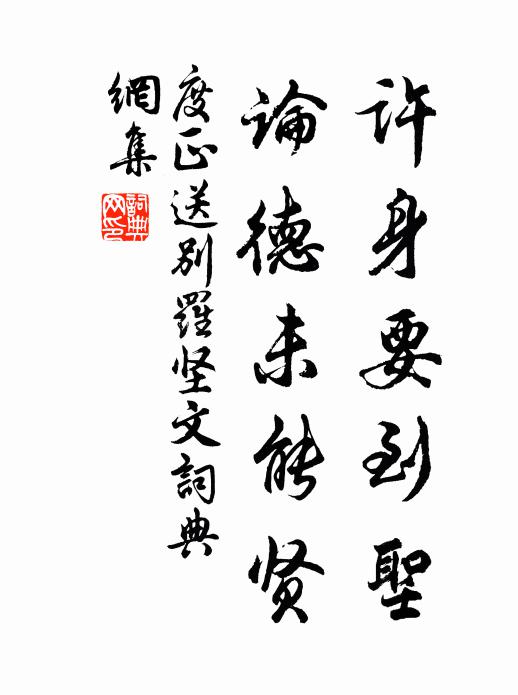 許身要到聖
論德未能贤
度正送别羅坚文詞典
網集
詞典
网印